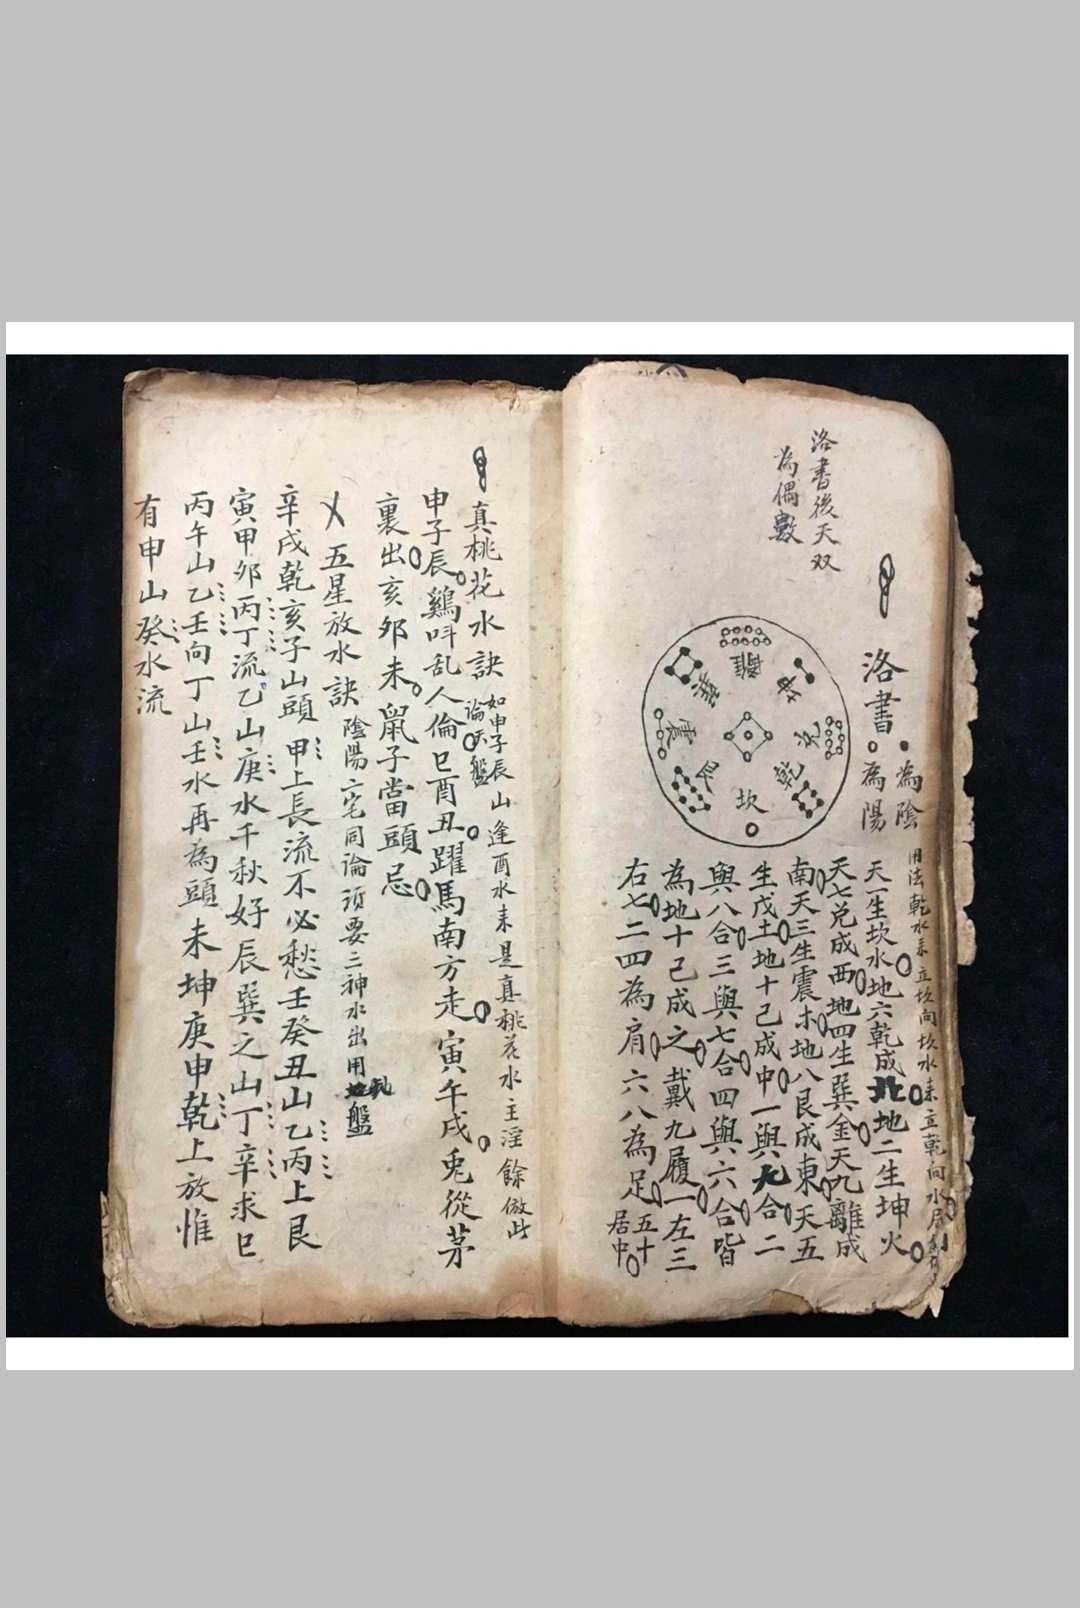 洛書後天双
為偶數
洛書
為陰
為陽
離
坤
兌
乾
坎
艮
震
巽
用法乾水來立坎向坎水來立乾向水局
天一生坎水地六乾成北地二生坤火
天七兌成西地四生巽金天九離成
南天三生震木地八艮成東天五
生戊土地十己成中一與九合二
與八合三與七合四與六合皆
為地十己成之戴九履一左三
右七二四為肩六八為足五十
居中
真桃花水訣
如申子辰山逢酉水來是真桃花水主淫餘倣此
論天盤
申子辰鷄呌乱人倫巳酉丑躍馬南方走寅午戌兎從茅
裏出亥夘未鼠子當頭忌
五星放水訣 陰陽二宅同論須要三神水出用地盤
辛戌乾亥子山頭甲上長流不必愁壬癸丑山乙丙上艮
寅甲夘丙丁流乙山庚水千秋好辰巽之山丁辛求巳
丙午山乙壬向丁山壬水再為頭未坤庚申乾上放惟
有申山癸水流